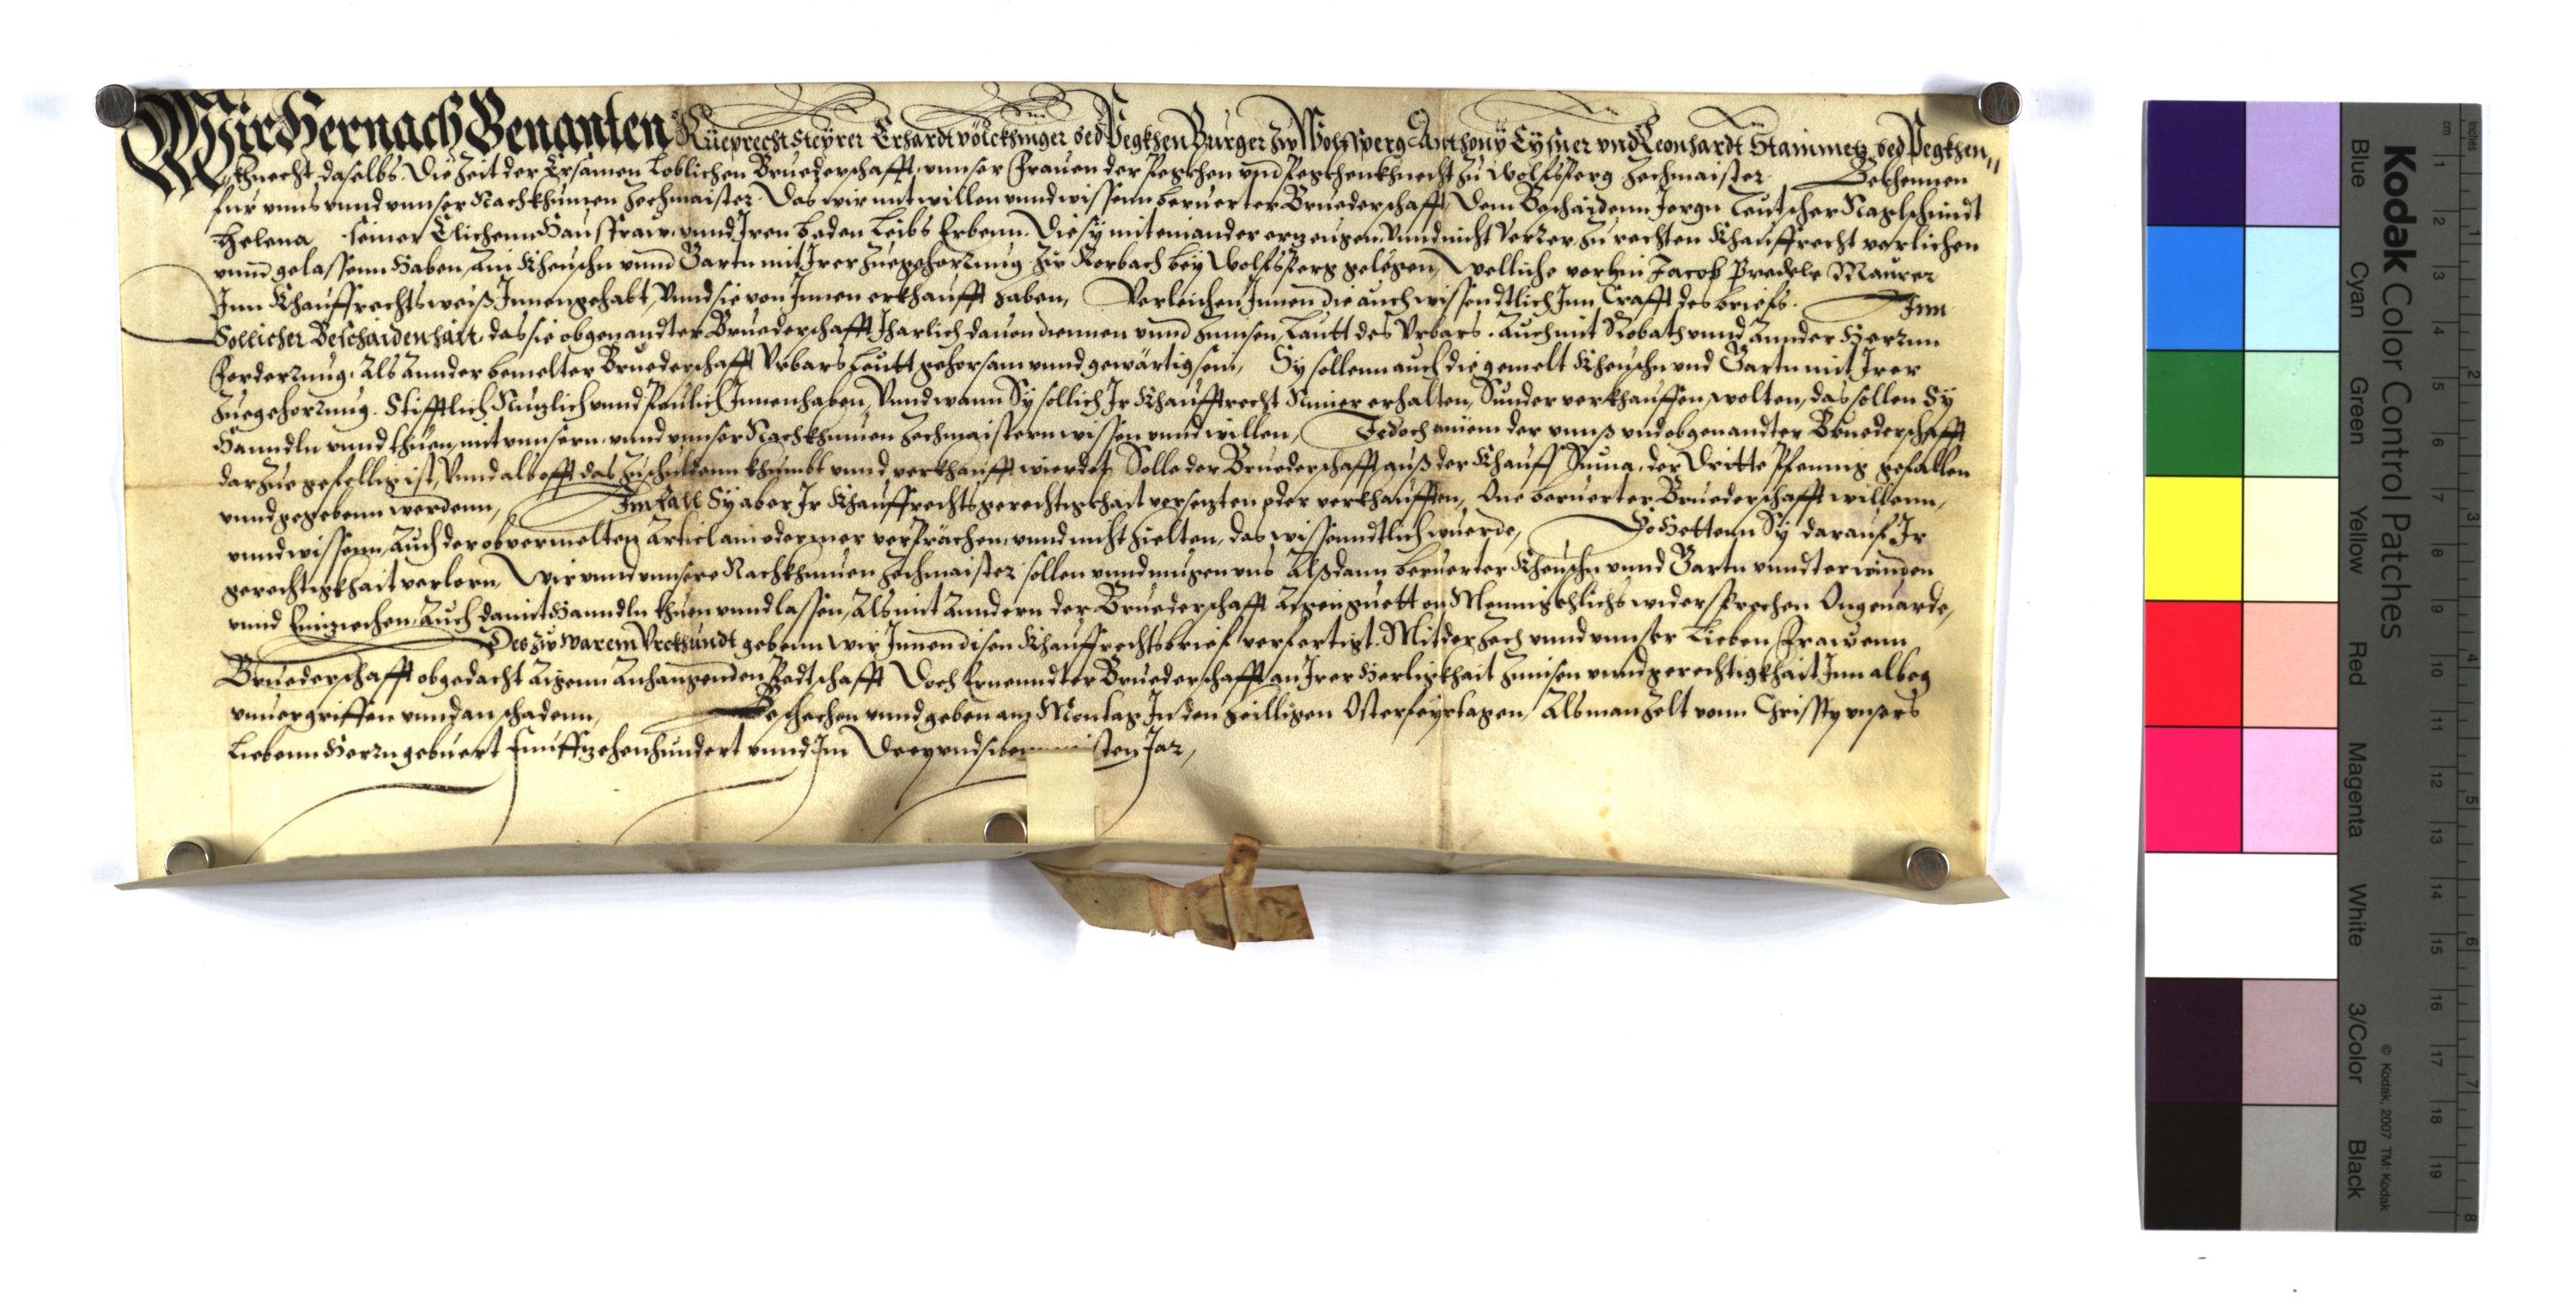 Wir Hernach Benanten Rüeprecht Steyrer Erhardt völckhinger bed Pegkhen Burger zw Wolfsperg Anthony Eysner vnd Leonhardt Stainmetz bed Pegkhen
khnecht daselbs. Die Zeit der Ersamen Loblichen Bruederschafft, vnnser Frauen der Pegkhen vnd Pegkhenkhnecht zu Wolfsperg Zechmaister Bekhennen
für vnns vnnd vnnser Nachkhumen Zechmaister. Das wir mit willen vnnd wissenn beruerter Bruederschafft, Dem Beschaidenn Jorgn Teutscher Naglschmidt
Helena seiner Elichenn Hausfraw, vnnd Iren beden Leibs Erbenn. Die sy miteinander erzeugen, Vnnd nicht verrer, zu rechten Khauffrecht verlichen
vnnd gelassenn Haben, Ain Kheuschn vnnd Gartn mit Irer zuegehorung zw Rorbach bey Wolfsperg gelegen, Welliche vorhin Jacob Predele Maurer
Inn Khauffrechts weiß Innengehabt, Vnnd sie von Innen erkhaufft haben, Verleichen Innen die auch wissendtlich Inn Crafft des briefs. Inn
Sollicher Beschaidenhait, das sie obgenandter Bruederschafft Iharlich dauon diennen vnnd zinnsen, Lautt des Vrbars. Auch mit Robath vnnd annder Herrnn
Forderung, Als annder bemelter Bruederschafft Vrbars Leutt gehorsam vnnd gewärtig sein, Sy sollenn auch die gemelt Kheuschn vnd Gartn mit Irer
zuegehorung. Stifftlich Nuzlich vnnd Peulich Innenhaben, Vnnd wann Sy sollich Ir Khauffrecht Nimer erhalten, Sunder verkhauffen wolten, das sollen Sy
Hanndln vnnd thuen, mit vnnsern vnnd vnnser Nachkhumen Zechmaistern wissen vnnd willen, Jedoch ainem der vnnß vnd obgenandter Bruederschafft
darzue gefellig ist, Vnnd als offt das zuschuldenn khumbt vnnd verkhaufft wierdet, Solle der Bruederschafft auß der Khauff Suma, der Dritte Pfennig gefallen
vnnd gegebenn werdenn, Imfall Sy aber Ir Khauffrechts gerechtigkhait versezten oder verkhaufften, One beruerter Bruederschafft willenn,
vnnd wissenn, Auch der obvermelten articl ain oder mer verprächen, vnnd nicht hielten, das wissenndtlich wuerde, So Hettenn Sy darauf Ir
gerechtigkhait verlorn, Wir vnnd vnnsere Nachkhumen Zechmaister sollen vnnd mugen vns Alßdann beruerter Kheuschn vnnd Gartn vnndterwinden
vnnd Einziechen, Auch damit Hanndln thuen vnnd lassen, Als mit anndern der Bruederschafft Aigenguett on Mennigkhlichs widersprechen Ongeuarde,
Des zw warem Vrekhundt gebenn wir Innen disen Khauffrechtsbrief verfertigt. Mit der Zech vnnd vnnser Lieben Frawenn
Bruederschafft obgedacht Aigenn Anhangenden Pedtschafft Doch Ernenndter Bruederschafft an Irer Herligkhait zinnsen vnnd gerechtigkhait Inn albeg
vnuergriffen vnnd an schadenn, Beschechen vnnd geben am Montag In den heilligen Osterfeyrtagen, Als man zelt vonn Christy vnsers
Liebenn Herrn gebuert Funffzehenhundert vnnd Im Dreyvndsiben sten Jar,
Kodak Color Control Patches
© Kodak, 2007 TM: Kodak
Blue Cyan Green Yellow Red Magenta White 3/Color Black
cm 1 2 3 4 5 6 7 8 9 10 11 12 13 14 15 16 17 18 19
inches 1 2 3 4 5 6 7 8